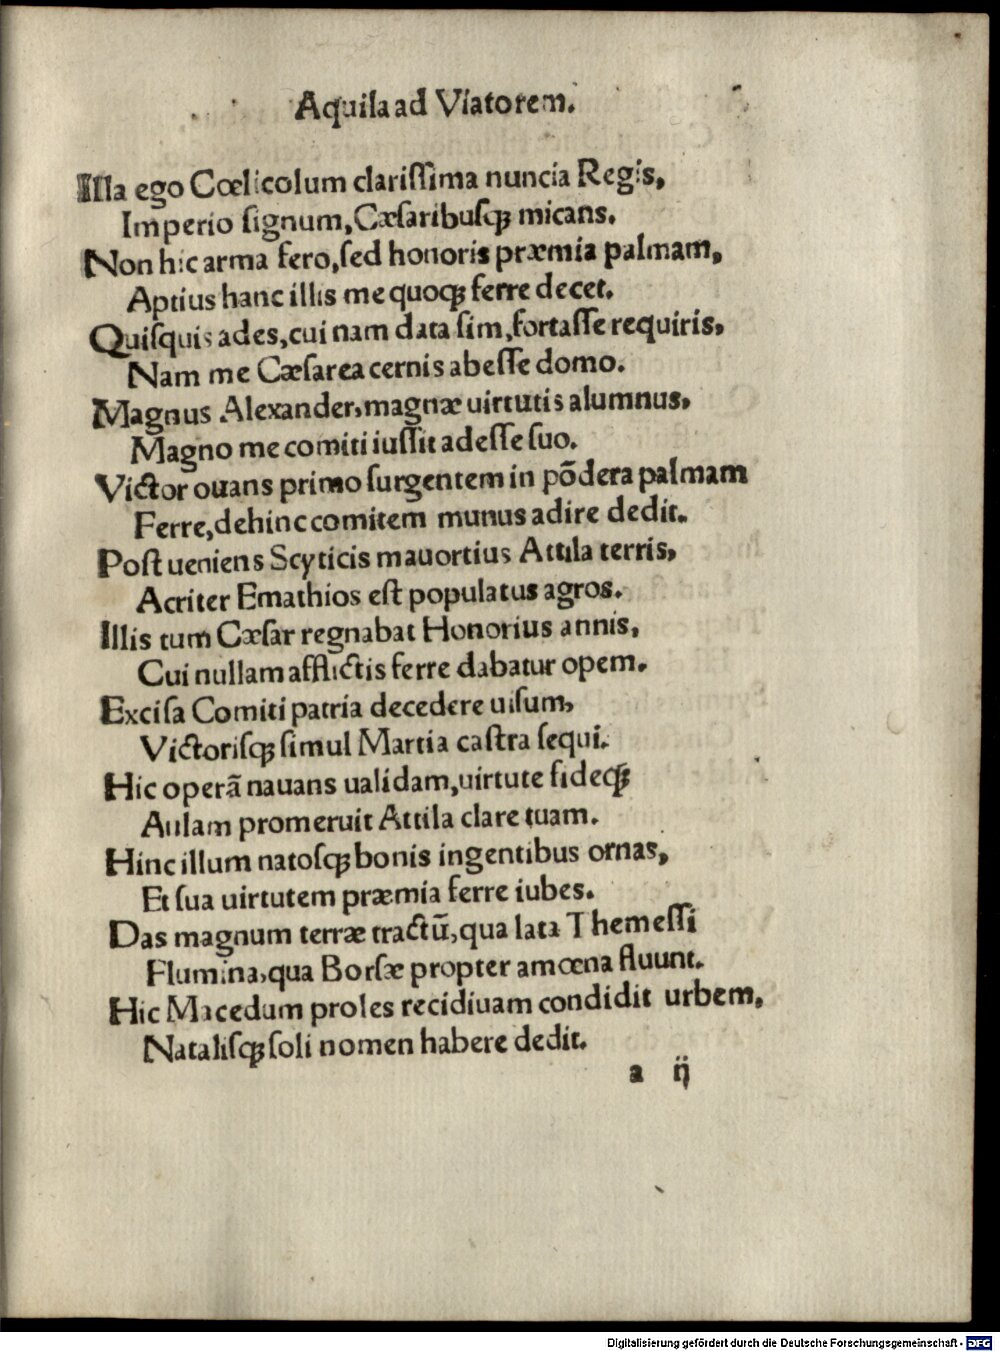 Aquila ad Viatorem.
Illa ego Cœlicolum clariſſima nuncia Regis,
Imperio ſignum, Cæſaribuſqꝫ micans.
Non hic arma fero, ſed honoris præmia palmam,
Aptius hanc illis me quoqꝫ ferre decet.
Quiſquis ades, cui nam data ſim, fortaſſe requiris,
Nam me Cæſarea cernis abeſſe domo.
Magnus Alexander, magnæ uirtutis alumnus,
Magno me comiti iuſſit adeſſe ſuo.
Victor ouans primo ſurgentem in põdera palmam
Ferre, dehinc comitem munus adire dedit.
Poſt ueniens Scyticis mauortius Attila terris,
Acriter Emathios eſt populatus agros.
Illis tum Cæſar regnabat Honorius annis,
Cui nullam afflictis ferre dabatur opem.
Exciſa Comiti patria decedere uiſum,
Victoriſqꝫ ſimul Martia caſtra ſequi.
Hic operã nauans ualidam, uirtute fideqꝫ
Aulam promeruit Attila clare tuam.
Hinc illum natoſqꝫ bonis ingentibus ornas,
Et ſua uirtutem præmia ferre iubes.
Das magnum terræ tractũ, qua lata Themeſſi
Flumina, qua Borſæ propter amœna fluunt.
Hic Macedum proles recidiuam condidit urbem,
Nataliſqꝫ ſoli nomen habere dedit.
a ij
Digitalisierung gefördert durch die Deutsche Forschungsgemeinschaft - DFG